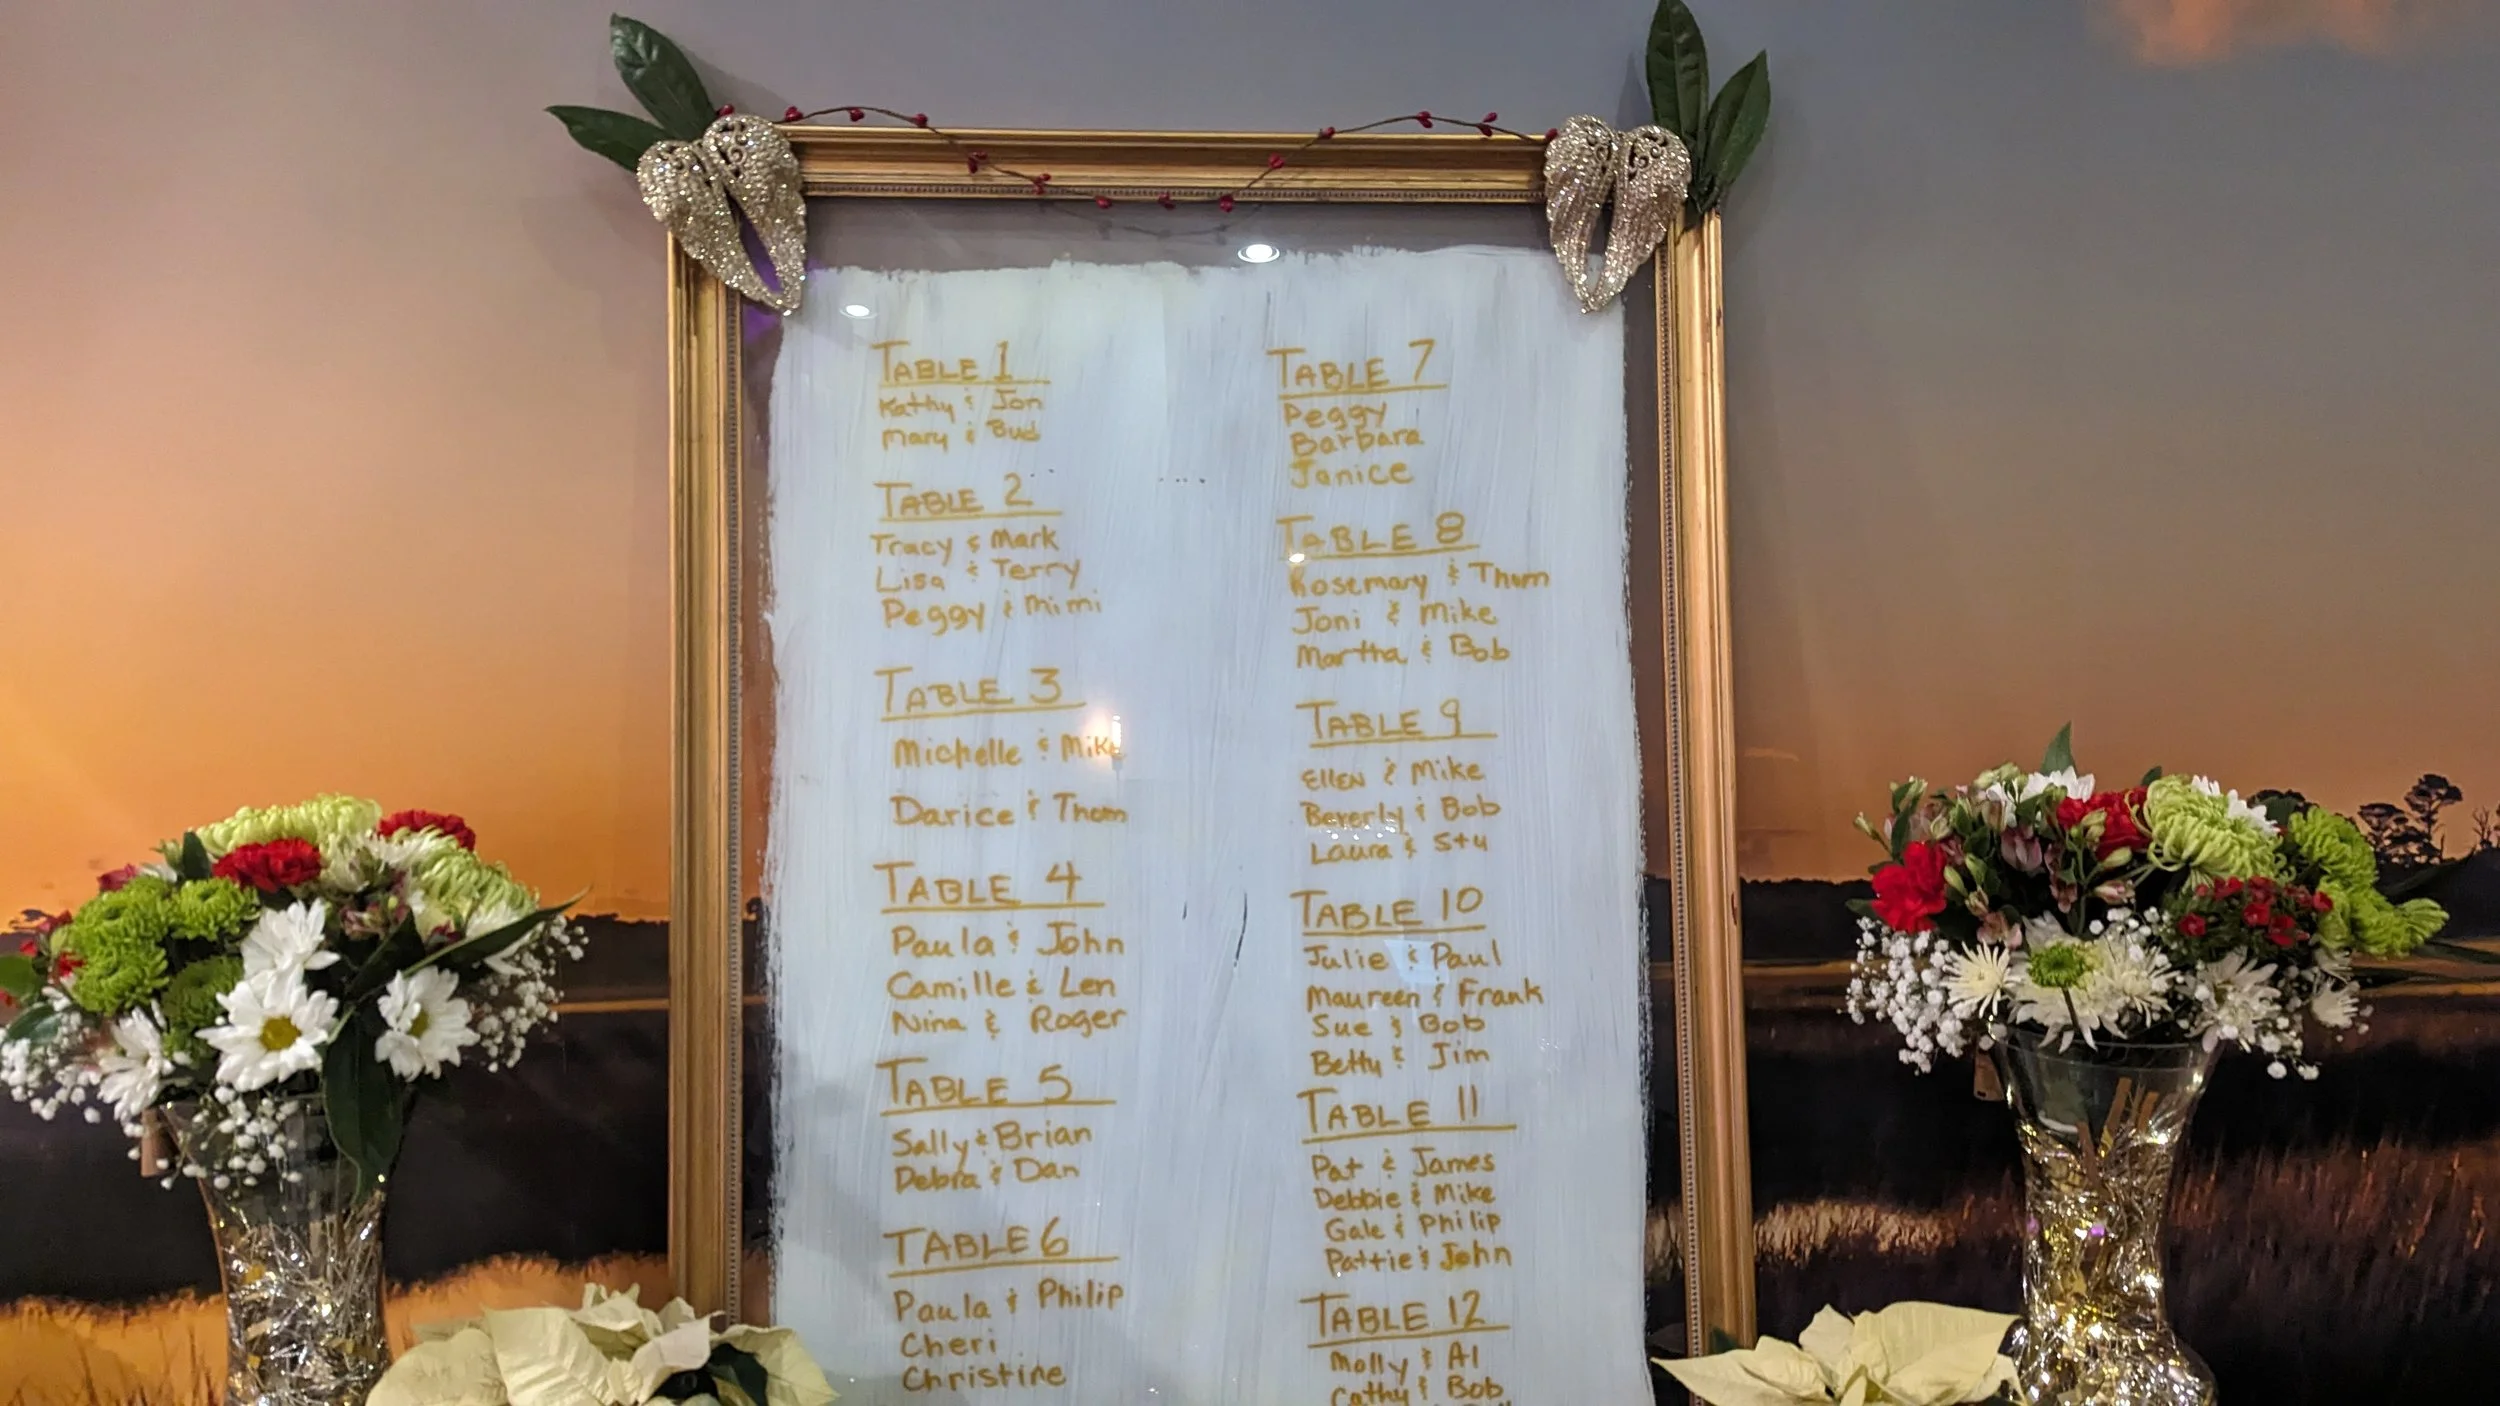 TABLE 1
Kathy & Jon
Mary & Bud
TABLE 2
Tracy & Mark
Lisa & Terry
Peggy & Mimi
TABLE 3
Michelle & Mike
Darice & Thom
TABLE 4
Paula & John
Camille & Len
Nina & Roger
TABLE 5
Sally & Brian
Debra & Dan
TABLE 6
Paula & Philip
Cheri
Christine
TABLE 7
Peggy
Barbara
Janice
TABLE 8
Rosemary & Thom
Joni & Mike
Martha & Bob
TABLE 9
Ellen & Mike
Beverly & Bob
Laura & Stu
TABLE 10
Julie & Paul
Maureen & Frank
Sue & Bob
Betty & Jim
TABLE 11
Pat & James
Debbie & Mike
Gale & Philip
Pattie & John
TABLE 12
Molly & Al
Cathy & Bob